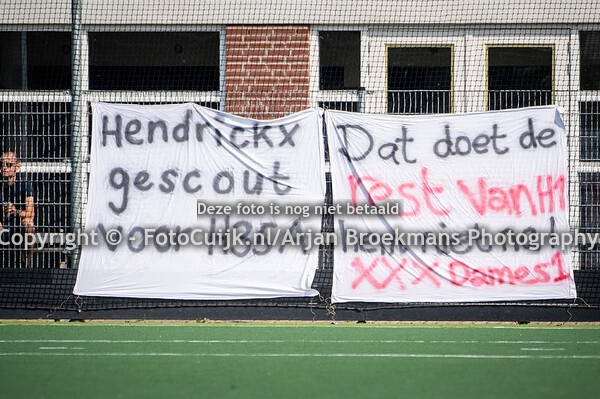 Hendrickx
gescout
voor
Dat doet de
rest van H1
XXX Dames 1
Deze foto is nog niet betaald
Copyright © - FotoCuijk.nl/Arjan Broekmans Photography